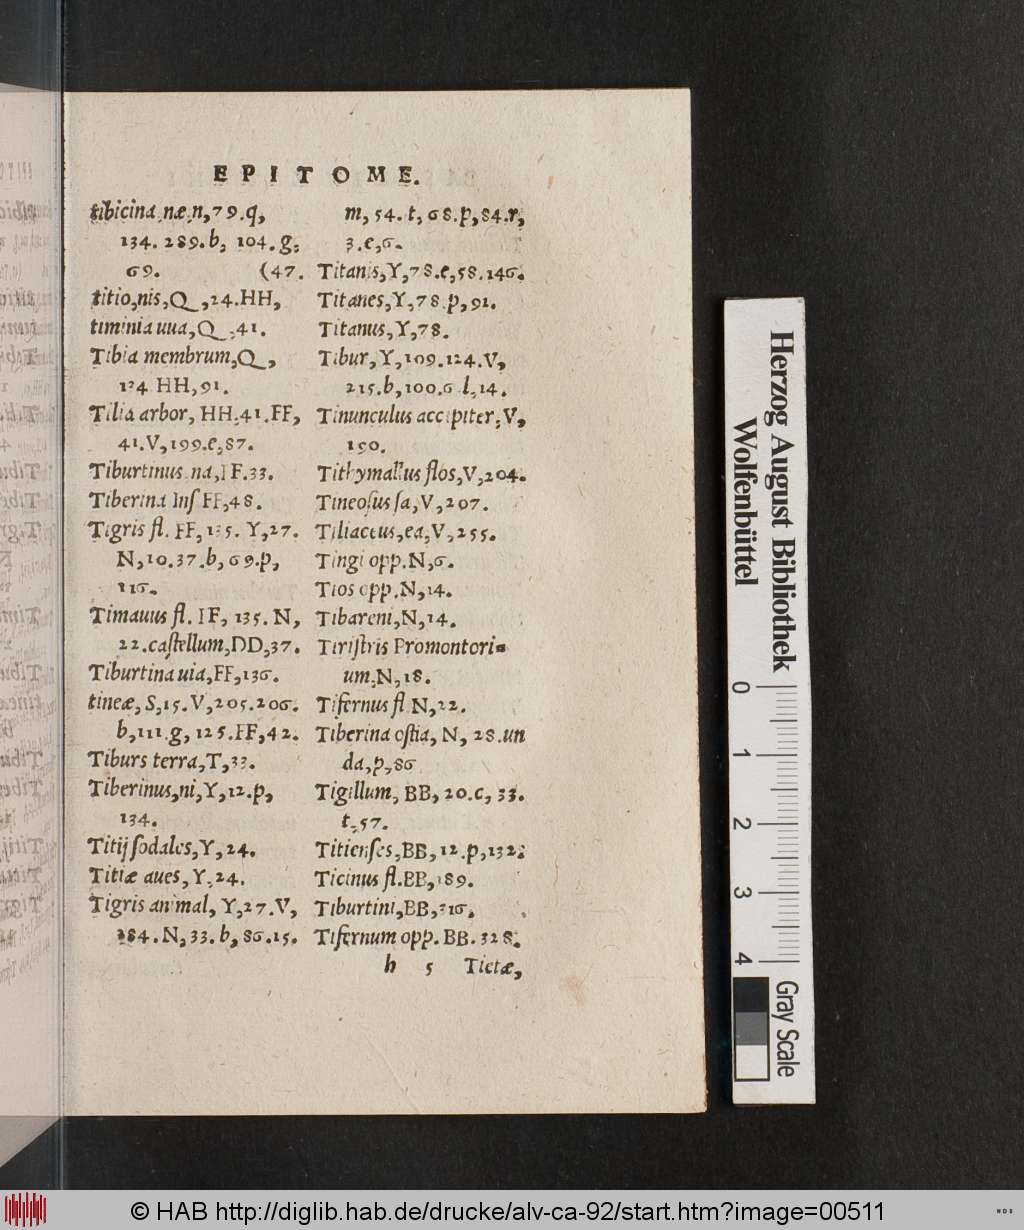 EPITOME.
tibicina næ n, 79. q,
134. 289. b, 104. g,
69. (47.
titio, nis, Q, 24. HH,
timinia uua, Q, 41.
Tibia membrum, Q,
124 HH, 91.
Tilia arbor, HH, 41. FF,
41. V, 199. e, 87.
Tiburtinus na, FF. 33.
Tiberina Inſ FF, 48.
Tigris fl. FF, 135. Y, 27.
N, 10. 37. b, 69. p,
116.
Timauus fl. FF, 135. N,
22. caſtellum, DD, 37.
Tiburtina uia, FF, 136.
tineæ, S, 15. V, 205. 206.
b, 111 g, 125. FF, 42.
Tiburs terra, T, 33.
Tiberinus, ni, Y, 12. p,
134.
Titij ſodales, Y, 24.
Titiæ aues, Y, 24.
Tigris animal, Y, 27. V,
184. N, 33. b, 86. 15.
m, 54. t, 68. p, 84. r,
3. e, 6.
Titanis, Y, 78. e, 58. 146.
Titanes, Y, 78. p, 91.
Titanus, Y, 78.
Tibur, Y, 109. 124. V,
215. b, 100. 6 l, 14.
Tinunculus accipiter, V,
190.
Tithymallus flos, V, 204.
Tineoſus ſa, V, 207.
Tiliaceus, ea, V, 255.
Tingi opp. N, 6.
Tios opp. N, 14.
Tibareni, N, 14.
Tiriſtris Promontori-
um, N, 18.
Tifernus fl N, 22.
Tiberina oſtia, N, 28. un
da, p, 86
Tigillum, BB, 20. c, 33.
t, 57.
Titienſes, BB, 12. p, 132.
Ticinus fl. BB, 189.
Tiburtini, BB, 316.
Tifernum opp. BB. 328.
h 5 Tictæ,
Herzog August Bibliothek
Wolfenbüttel
0 1 2 3 4
Gray Scale
© HAB http://diglib.hab.de/drucke/alv-ca-92/start.htm?image=00511
WDB